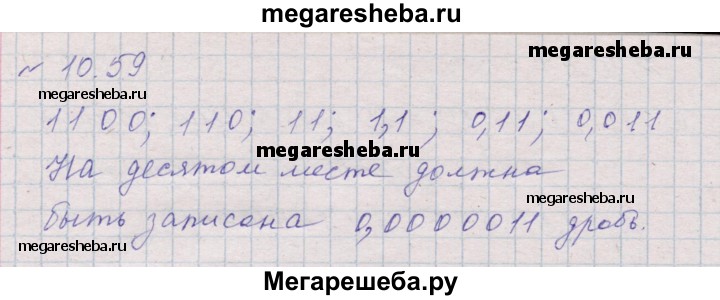 megaresheba.ru
№ 10.59
megaresheba.ru
megaresheba.ru
1100; 110; 11; 1,1; 0,11; 0,011
megaresheba.ru
На десятом месте должна
megaresheba.ru
быть записана 0,0000011 дробь.
megaresheba.ru
Мегарешеба.ру